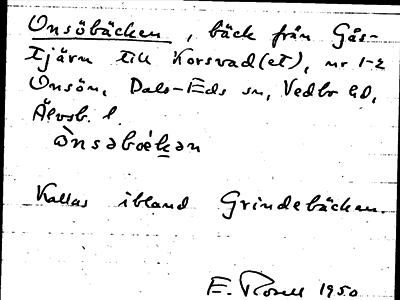 Onsöbäcken, bäck från Gås-
tjärn till Korsvad(et), nr 1-2
Onsön, Dals-Eds sn, Vedbo hd,
Älvsb. l.
ònsəbœ́kən
Kallas ibland Grindebäcken.
E. Rosell 1950